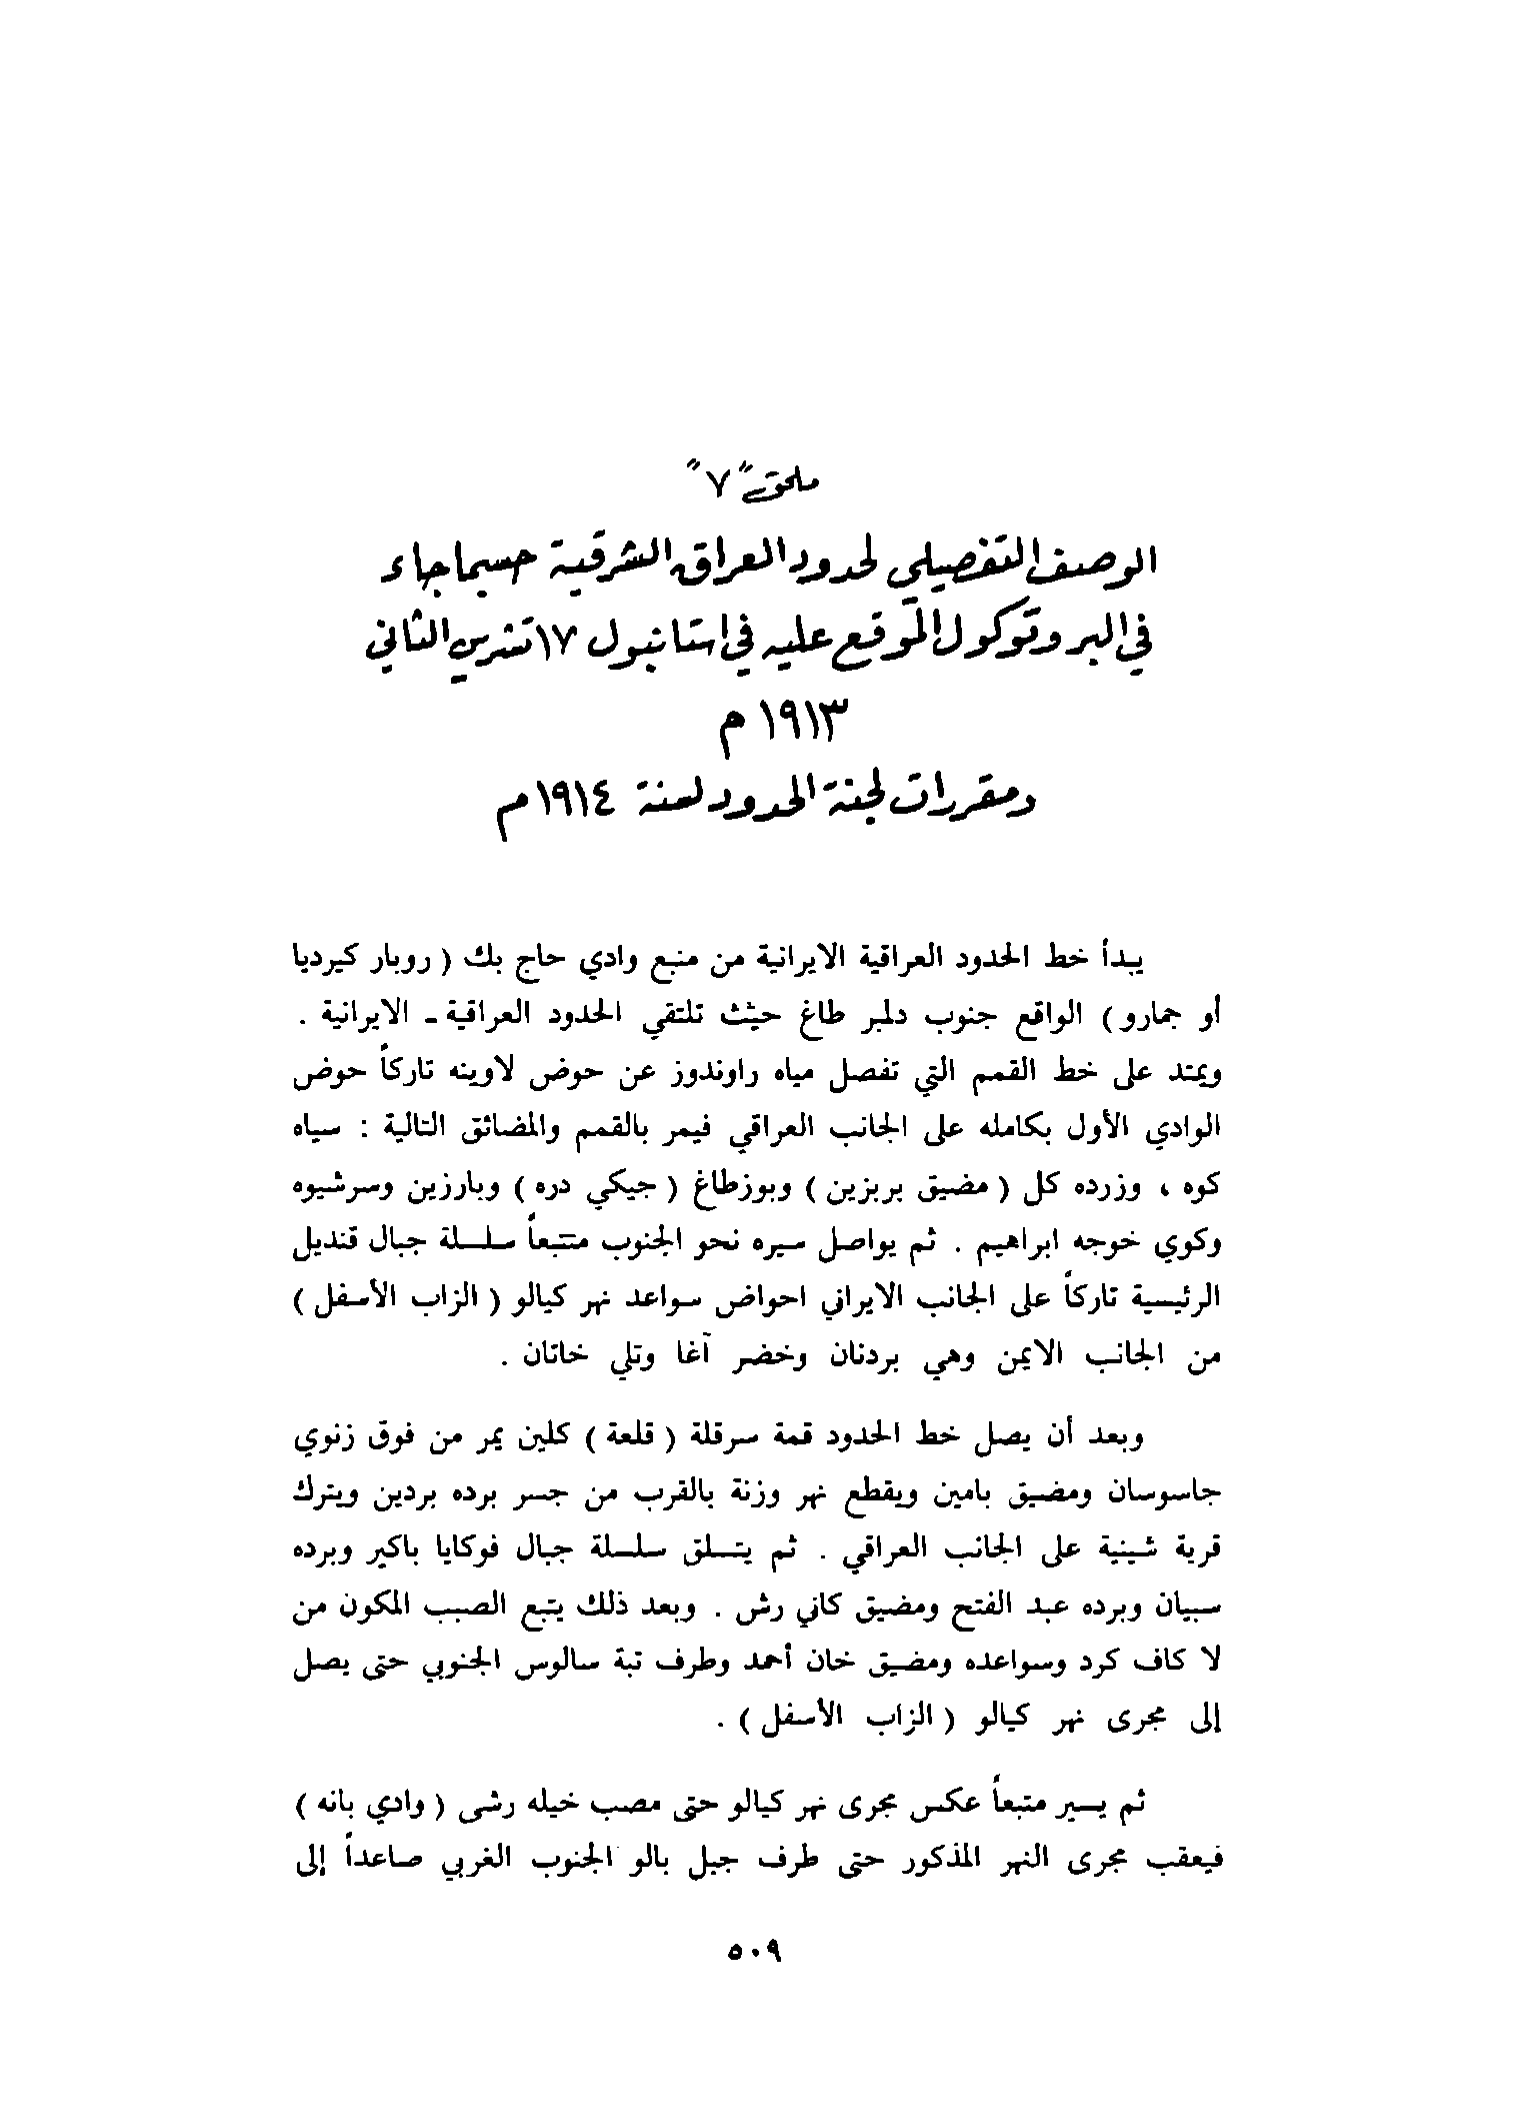 ملحق "٧"
الوصف التفصيلي لحدود العراق الشرقية حسبما جاء
في البروتوكول الموقع عليه في استانبول ١٧ تشرين الثاني
١٩١٣ م
ومقررات لجنة الحدود لسنة ١٩١٤ م
يبدأ خط الحدود العراقية الايرانية من منبع وادي حاج بك ( روبار كيرديا
أو جمارو ) الواقع جنوب دلمبر طاغ حيثث تلتقي الحدود العراقية ـ الايرانية .
ويمتد على خط القمم التي تفصل مياه راوندوز عن حوض لاوينه تاركاً حوض
الوادي الأول بكامله على الجانب العراقي فيمر بالقمم والمضائق التالية : سياه
كوه ، وزرده كل ( مضيق بربزين ) وبوزطاغ ( جيكي دره ) وبارزين وسرشيوه
وكوي خوجه ابراهيم . ثم يواصل سيره نحو الجنوب متتبعاً سلسلة جبال قنديل
الرئيسية تاركاً على الجانب الايراني احواض سواعد نهر كيالو ( الزاب الأسفل )
من الجانب الايمن وهي بردنان وخضر آغا وتلي خاتان .
وبعد أن يصل خط الحدود قمة سرقلة ( قلعة ) كلين يمر من فوق زنوي
جاسوسان ومضيق بامين ويقطع نهر وزنة بالقرب من جسر برده بردين ويترك
قرية شينية على الجانب العراقي . ثم يتسلق سلسلة جبال فوكايا باكير وبرده
سبيان وبرده عبد الفتح ومضيق كاني رش . وبعد ذلك يتبع الصبب المكون من
لا كاف كرد وسواعده ومضيق خان أحمد وطرف تبة سالوس الجنوبي حتى يصل
إلى مجرى نهر كيالو ( الزاب الأسفل ) .
ثم يسير متبعاً عكس مجرى نهر كيالو حتى مصب خيله رشى ( وادي بانه )
فيعقب مجرى النهر المذكور حتى طرف جبل بالو الجنوب الغربي صاعداً إلى
٥٠٩